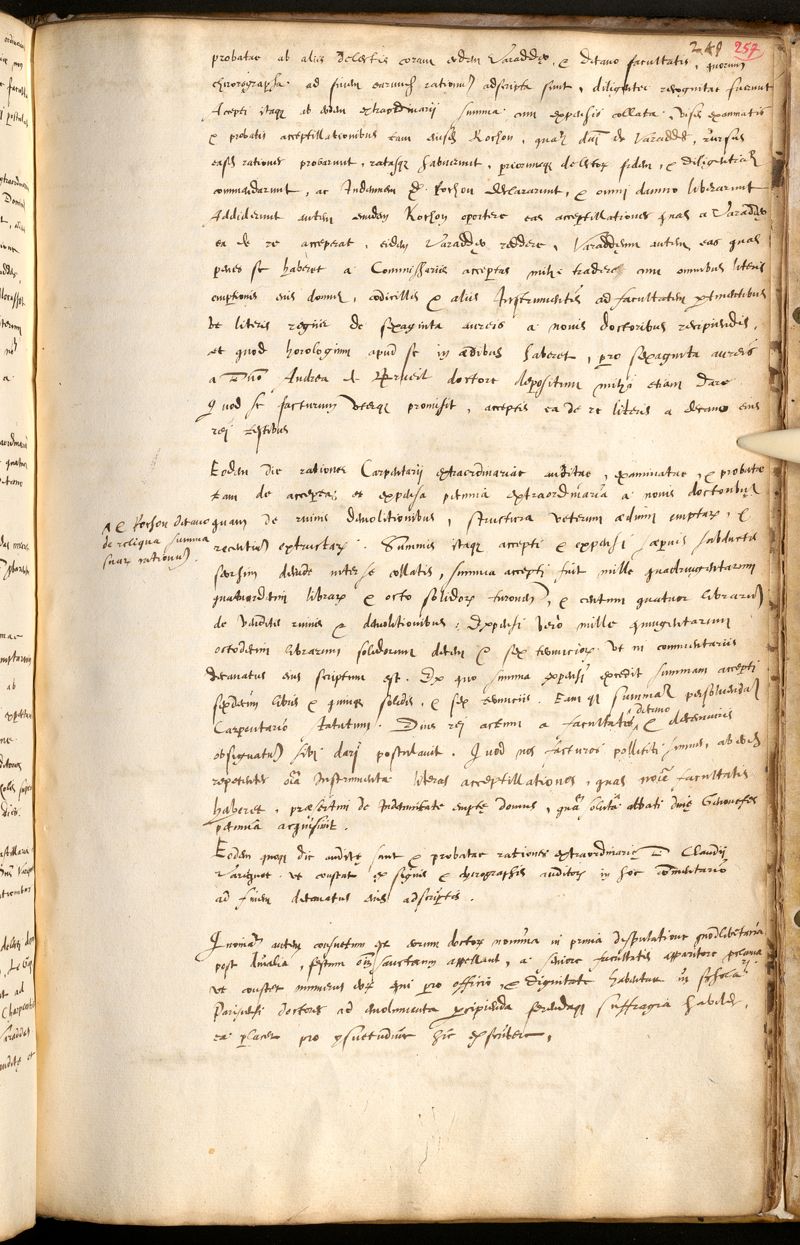 249 257
probatae ab aliis delectis coram eodem Varadeo, & decano facultatis, quorum
chirographa ad finem earumdem rationum adscripta sunt, diligenter recognitae fuerunt
Accepti itaque ab eodem extraordinarii summa cum expensis collata, visis examinatis
& probatis acceptillationibus tam eiusdem Rochon, quam de Varaddeo, rursus
easdem rationes probarunt, ratasque habuerunt, priorumque fidem, & diligentiam
commendarunt, ac Indemnem Rochon declararunt, & omni damno liberarunt
Addiderunt autem eumdem Rochon oportere eas acceptillationes quas a Varaddeo
ea de re acceperat, eidem Varaddeo reddere, Varaddeum autem eas quas
penes se haberet a Commissariis acceptas mihi tradere cum omnibus literis
emptionis eius domus, codicillis & aliis Instrumentis ad facultatem pertinentibus
ut literis regiis de sexaginta aureis a novis doctoribus recipiendis,
et quod horologium apud se in aedibus haberet, pro sexaginta aureis
a Dno Andrea doctore depositum mihi etiam dare
Quod se facturum uterque promisit, acceptis ea de re literis a decano eius
rei testibus
Eodem die rationes Carpentarii extraordinariae auditae, examinatae, & probatae
tam de accepta et expensa pecunia extraordinaria a novis doctoribus
quam de ruinis demolitionibus, structura veterum aedium emptarum, &
recentium extructarum. Summis itaque accepti & expensi saepius subductis
seorsim deinde inter se collatis, summa accepti fuit mille quadringentarum
quatuordecim librarum & octo solidorum turonen, & centum quatuor librarum
de venditis ruinis & demolitionibus: Expensi vero mille quingentarum
octodecim librarum solidorum decem & sex teruncior. ut in commentariis
decanatus eius scriptum est. Ex quo summa expensi excedit summam accepti
sexdecim libris & quinque solidis, & sex teruncis. Eam summam persolvendam
Carpentario statutum. Eius rei actum a facultatis decano & decemviris
obsignatum sibi dari postulavit. Quod nos facturos polliciti sumus, ab eodem
repetentes omnia Instrumenta literas acceptillationes, quas nomine facultatis
haberet, praesertim de Indemnitate emptae domus, quam soluta abbati divae Genovefes
pecunia acquisivit.
& Rochon decano
de reliqua summa
suarum rationum.
Eodem quoque die auditae sunt & probatae rationes extraordinariae D Claudii
Varegnot. ut constat ex signis & chirographis auditorum in hoc commentario
ad finem decanatus eius adscriptis.
Quoniam autem consuetum est eorum doctorum nomina in prima disputatione quodlibetaria
post Luvalia, festum omnium sanctorum appellant, a seniore facultatis apparitore proclamari
ut constet numerus eorum qui pro officio, & dignitate habentur in schola
Parisiensi doctores ad emolumenta percipienda ferendaque suffragia habiles,
ea placet pro consuetudine hic exscribere,